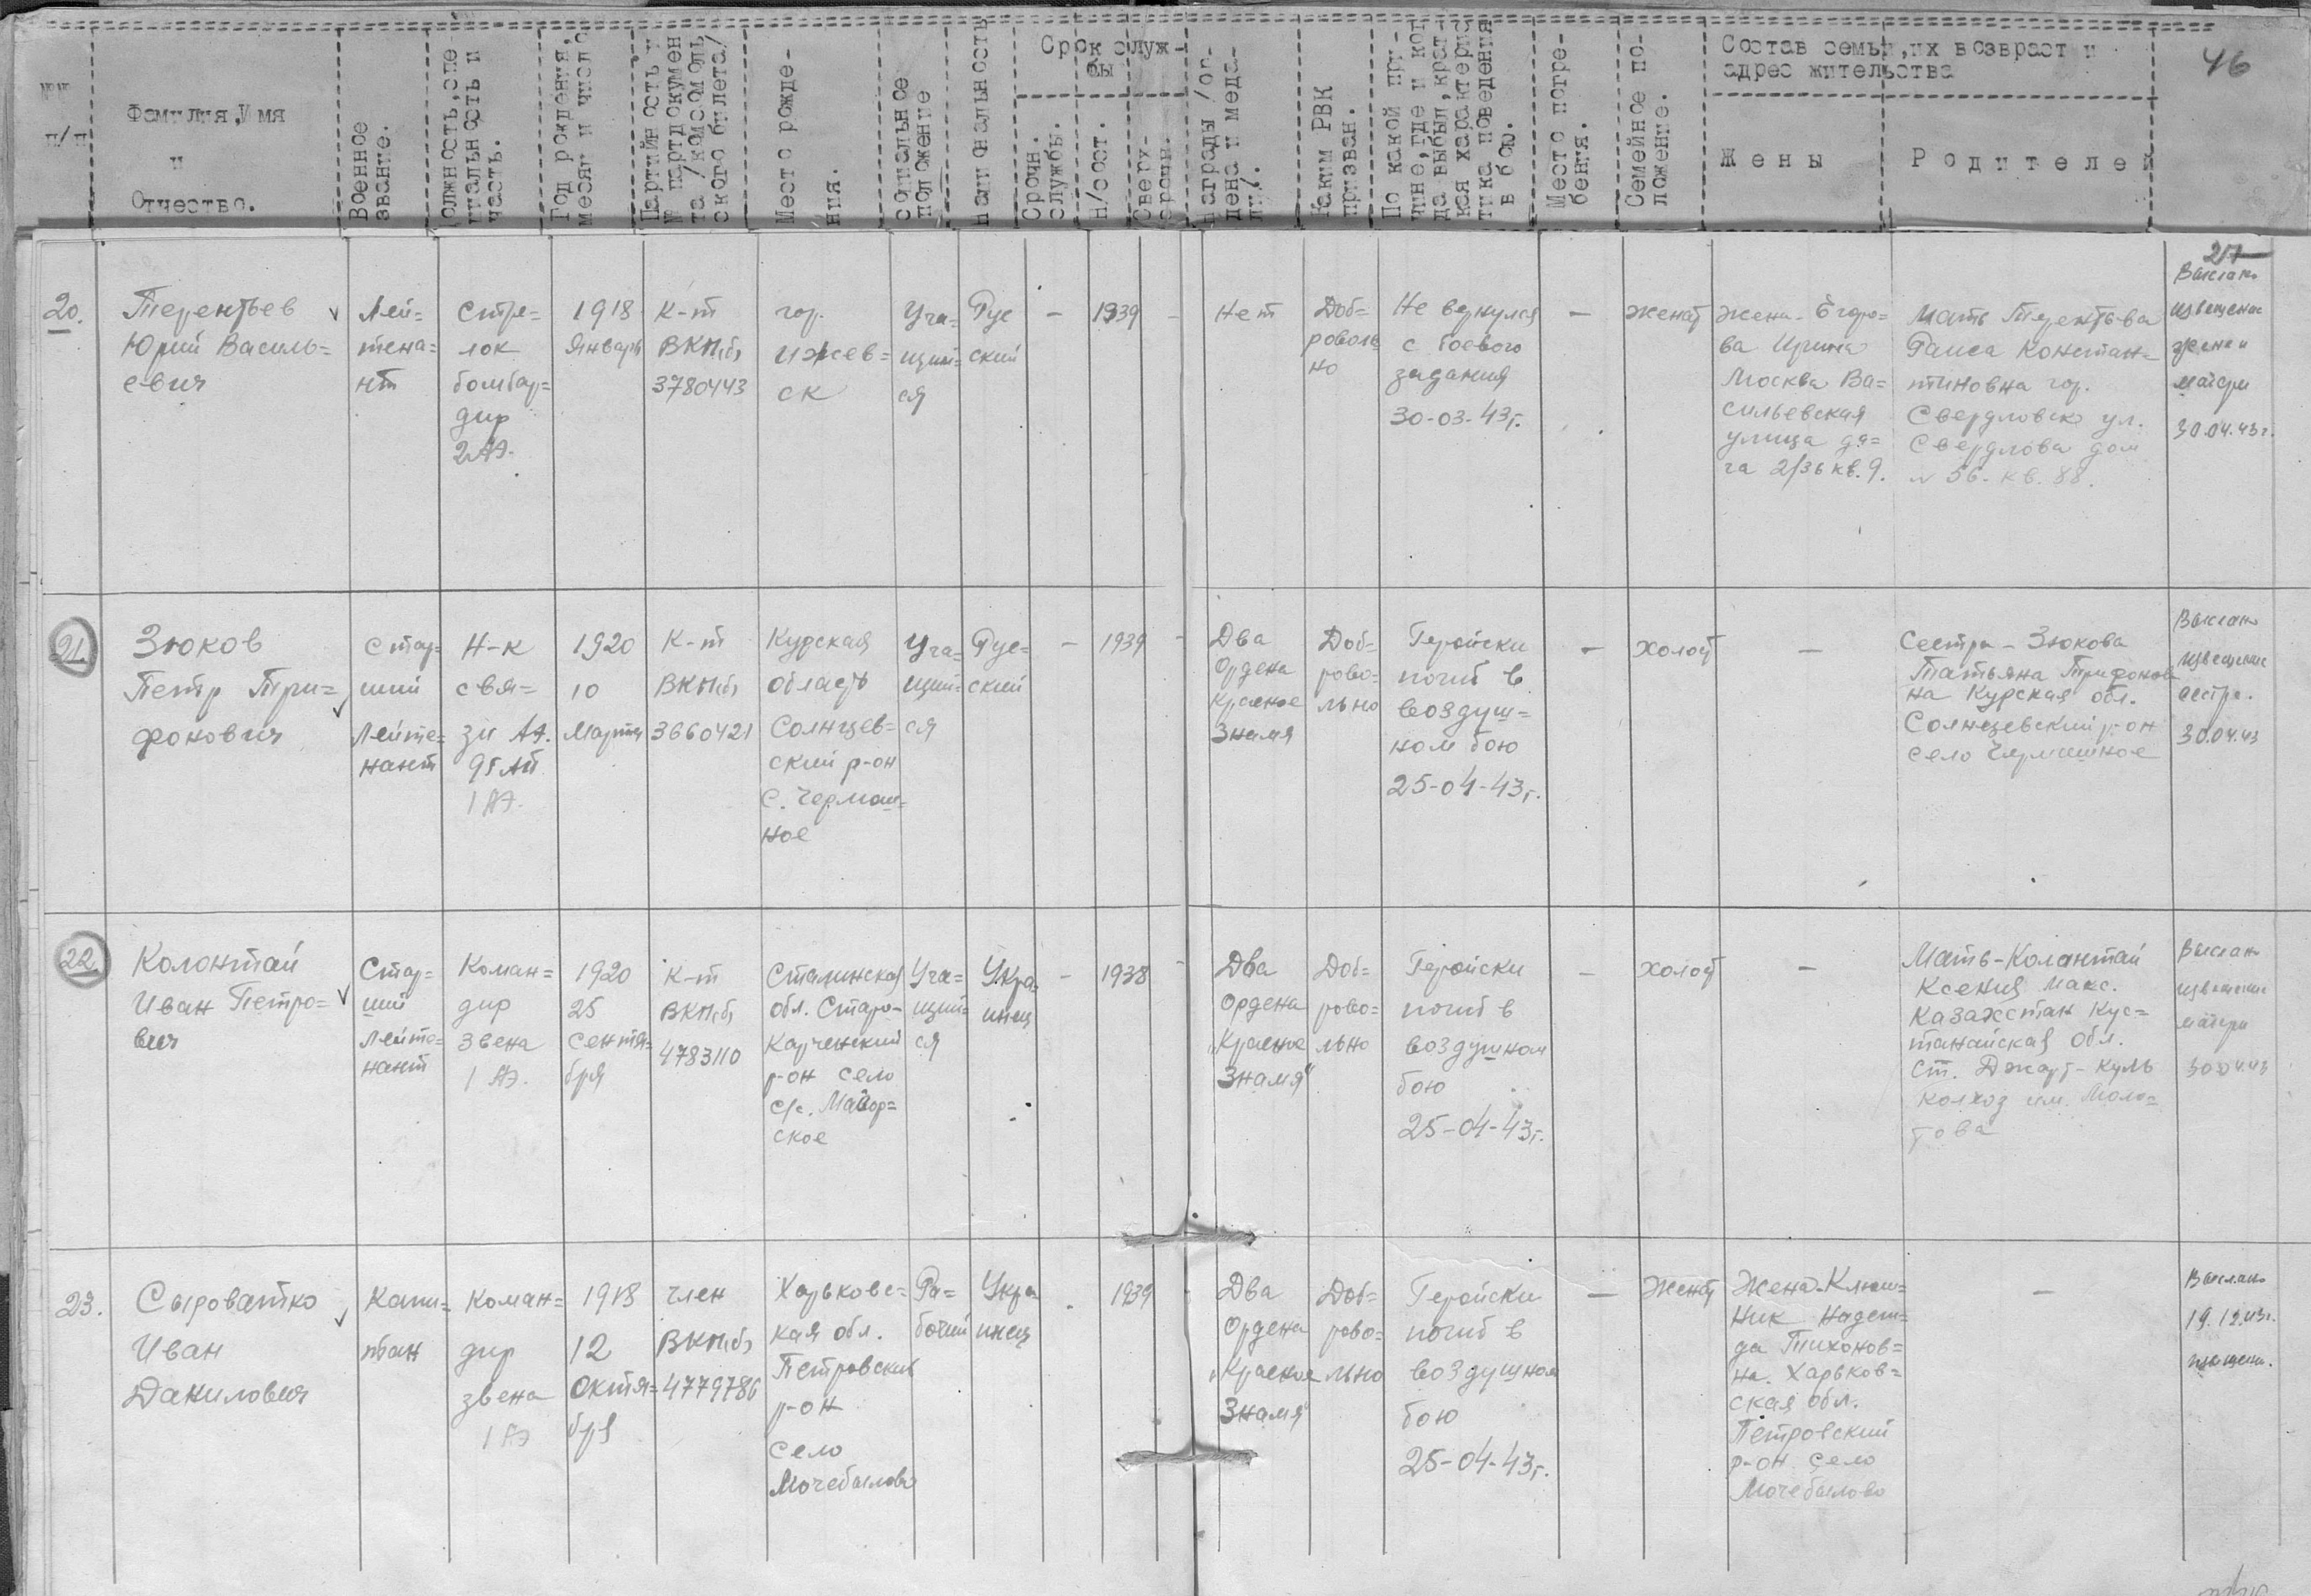 46
№№ п/п
Фамилия, Имя
и
Отчество.
Военное
звание.
Должность, спе
циальность и
часть.
Год рождения,
месяц и число
Партийность и
№ партдокумен
та /комсомоль
ского билета/
Место рожде-
ния.
Социальное
положение
Национальность
Срок служ-
бы
Срочн.
службы.
Н/сост.
Сверх-
срочн.
Награды /ор-
дена и меда-
ли/.
Каким РВК
призван.
По какой при-
чине, где и ког
да выбыл, крат-
кая характерис
тика поведения
в бою.
Место погре-
бения.
Семейное по-
ложение.
Состав семьи, их возвраст и
адрес жительства
Жены
Родителей
20.
Терентьев
Юрий Василь=
евич
Лей=
тена=
нт
Стре=
лок
бомбар=
дир
2 АЭ.
1918
Январь
К-т
ВКП(б)
3780443
гор.
Ижев=
ск
Уча=
щий=
ся
Рус
ский
-
1939
-
Нет
Доб=
роволь=
но
Не вернулся
с боевого
задания
30-03-43г.
-
женат
Жена - Егоро=
ва Ирина
Москва Ва=
сильевская
улица да=
ча 2/36 кв. 9.
Мать Терентьева
Раиса Констан=
тиновна гор.
Свердловск ул.
Свердлова дом
№ 56. кв. 88.
Выслано
извещение
жене и
матери
30.04.43г.
21.
Зюков
Петр Три=
фонович
Стар=
ший
Лейте=
нант
Н-к
свя=
зи АЭ.
95 АП
1 АЭ.
1920
10
Марта
К-т
ВКП(б)
3660421
Курская
область
Солнцев=
ский р-он
с. Чермош=
ное
Уча=
щий=
ся
Рус=
ский
-
1939
-
Два
Ордена
Красное
Знамя
Доб=
рово=
льно
Геройски
погиб в
воздуш=
ном бою
25-04-43г.
-
холост
-
Сестра - Зюкова
Татьяна Трифонов
на Курская обл.
Солнцевский р-он
село Чермошное
Выслано
извещение
сестре.
30.04.43
22.
Колонтай
Иван Петро=
вич
Стар=
ший
лейте=
нант
Коман=
дир
звена
1 АЭ.
1920
25
сентя=
бря
К-т
ВКП(б)
4783110
Сталинская
обл. Старо-
Карченский
р-он село
с/с. Майор=
ское
Уча=
щий=
ся
Укра=
инец
-
1938
-
Два
Ордена
"Красное
Знамя"
Доб=
рово=
льно
Геройски
погиб в
воздушном
бою
25-04-43г.
-
холост
-
Мать - Колантай
Ксения Макс.
Казахстан Кус=
танайская обл.
ст. Джар-Куль
колхоз им. Моло=
това
Выслано
извещение
матери
30.04.43
23.
Сыроватко
Иван
Данилович
Капи=
тан
Коман=
дир
звена
1 АЭ
1918
12
октя=
бря
член
ВКП(б)
4779786
Харьковс=
кая обл.
Петровский
р-он
село
Мочебылово
Ра=
бочий
Укра
инец
-
1939
-
Два
Ордена
"Красное
Знамя"
Доб=
рово=
льно
Геройски
погиб в
воздушном
бою
25-04-43г.
-
Женат
Жена - Клюш=
ник Надеж=
да Тихонов=
на. Харьков=
ская обл.
Петровский
р-он село
Мочебылово
-
Выслано
19.12.43г.